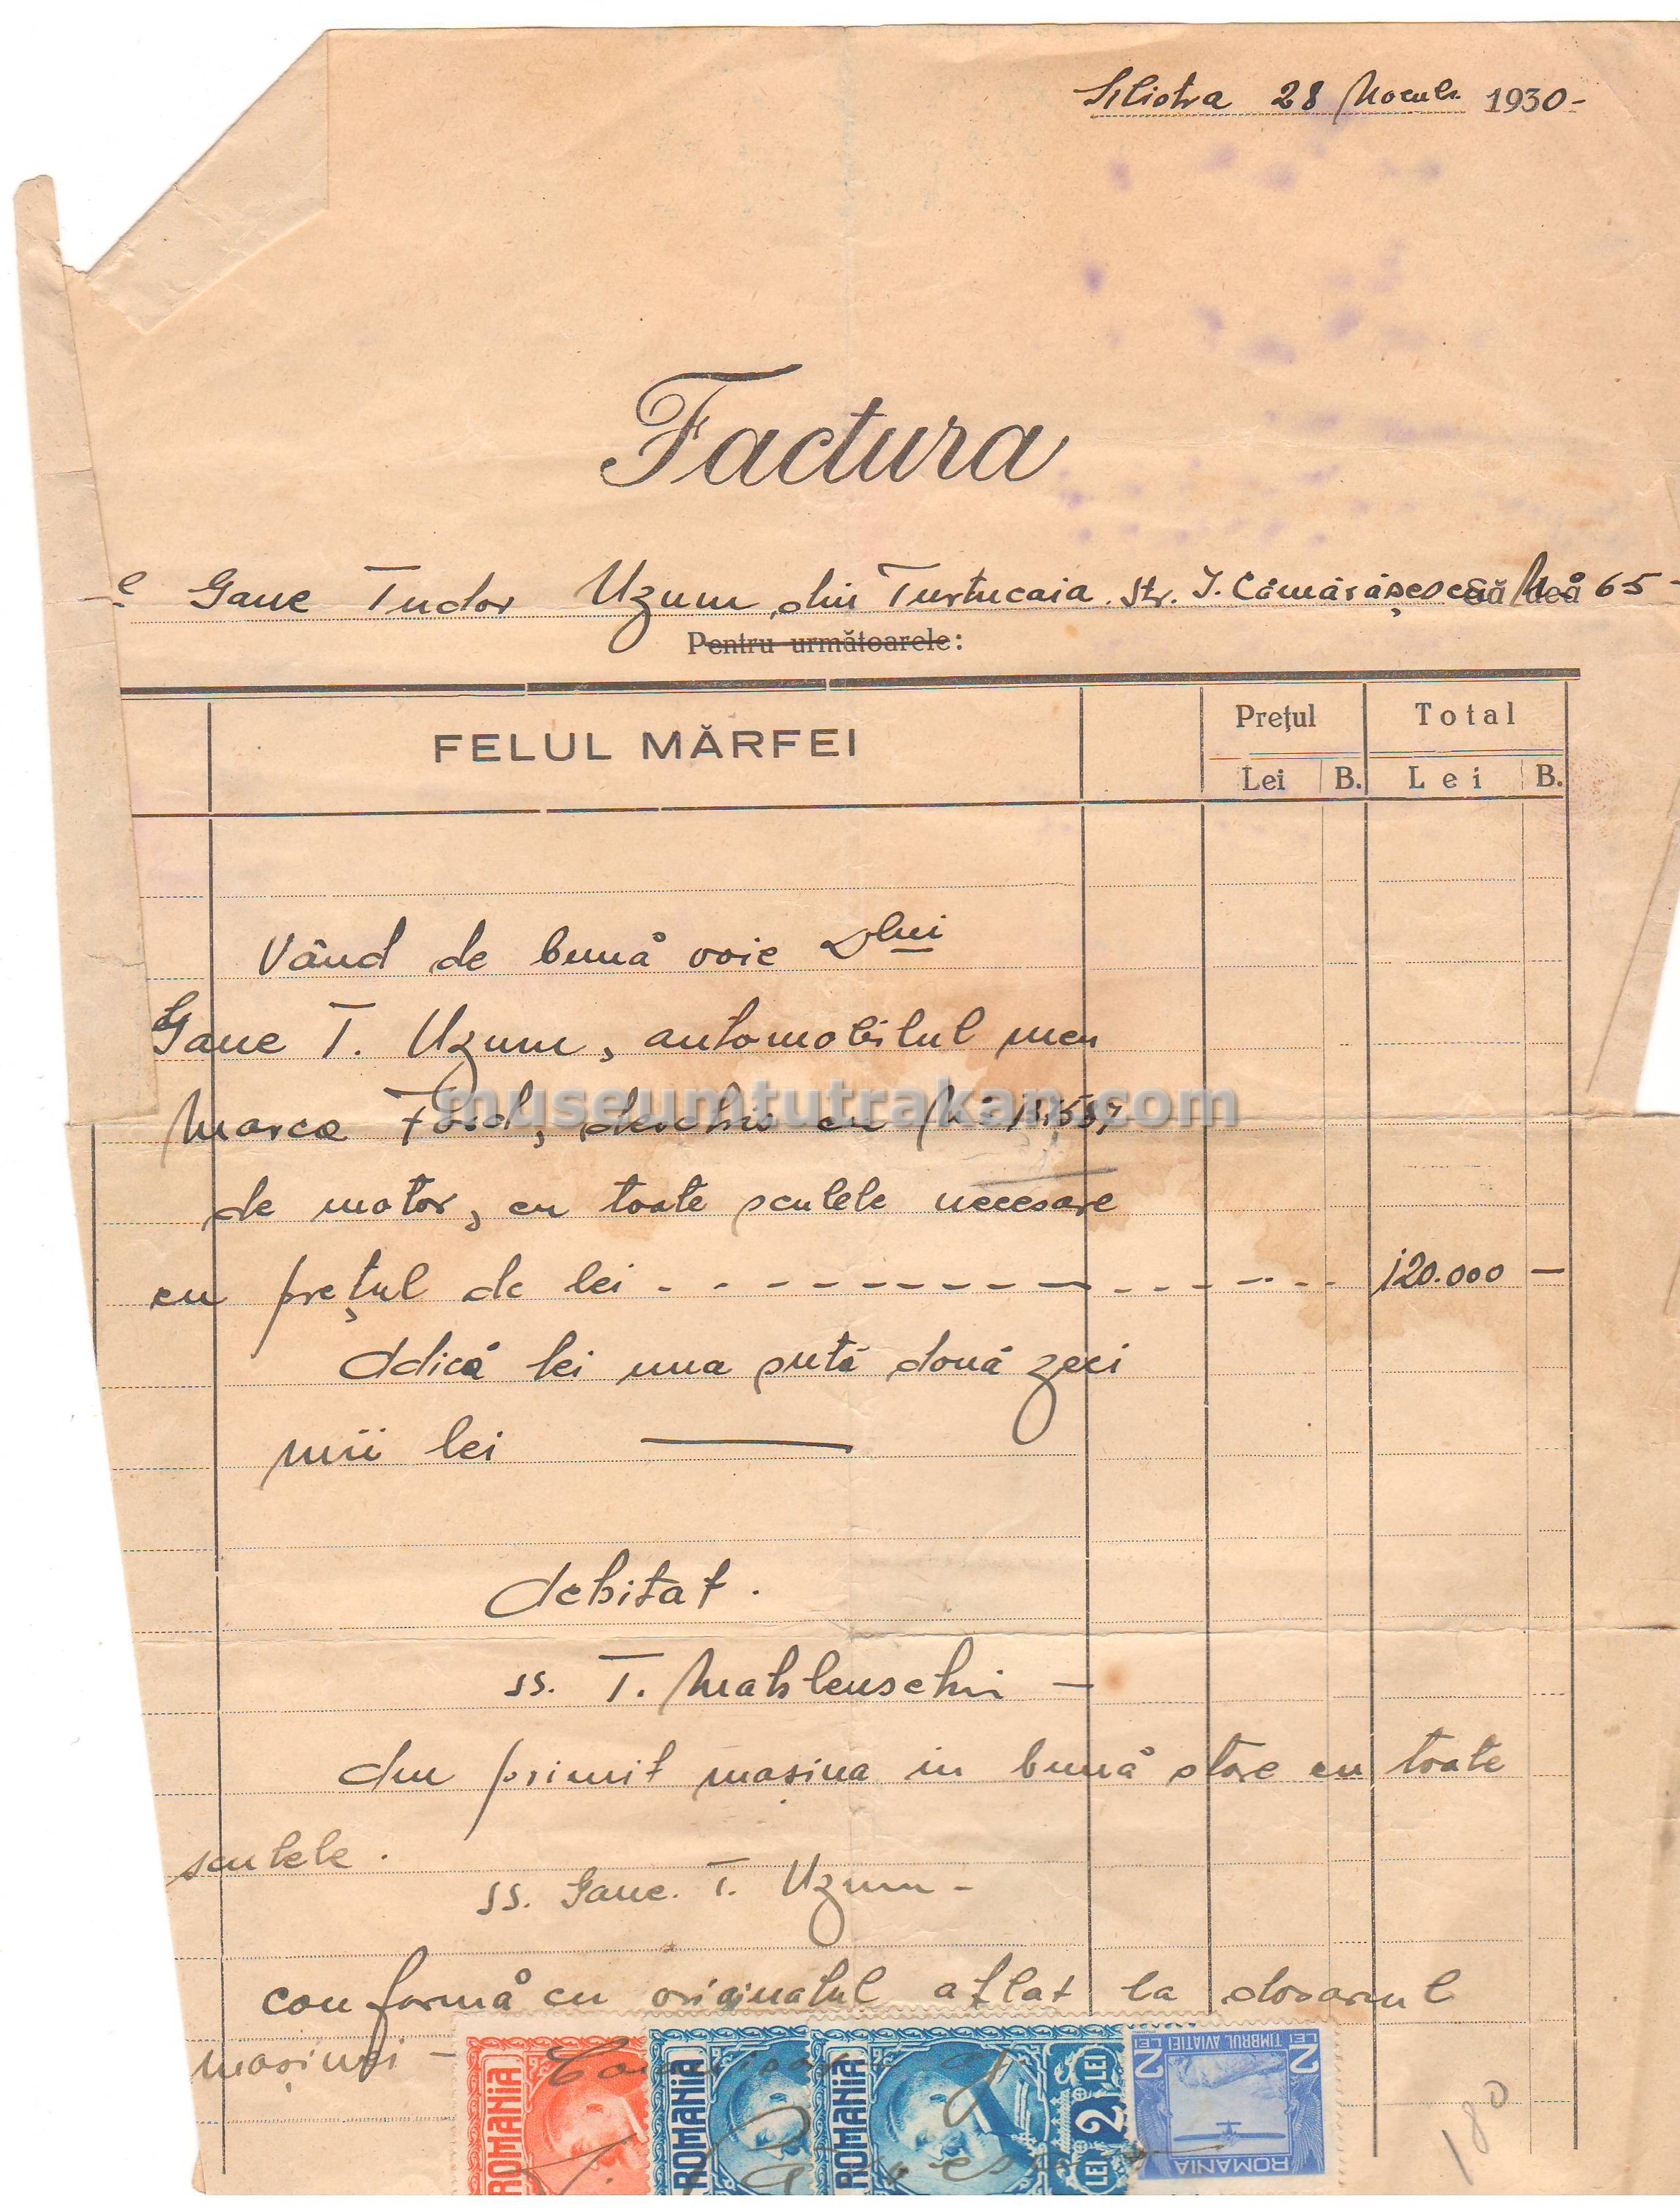 Silistra 28 Noemb. 1930-
Factura
Gane Tudor Uzum, din Turtucaia. Str. I. Cămărășescu No 65-
să dea
Pentru următoarele:
FELUL MĂRFEI
Prețul
Total
Lei B. Lei B.
Vând de bună voie Dlui
Gane T. Uzum, automobilul meu
Marca Ford, deschis cu No
de motor, cu toate sculele necesare
cu prețul de lei - - - - - - - - - - - - - 120.000 —
Adică lei una sută două zeci
mii lei ———
Achitat.
ss. T. Mahlenschi —
Am primit mașina in bună stare cu toate
sculele.
ss. Gane. T. Uzum -
conformă cu originalul aflat la dosarul
mașinei —
ROMANIA
ROMANIA
ROMANIA
LEI 2 LEI
2 LEI TIMBRUL AVIATIEI 2 LEI
ROMANIA
180
museumtutrakan.com